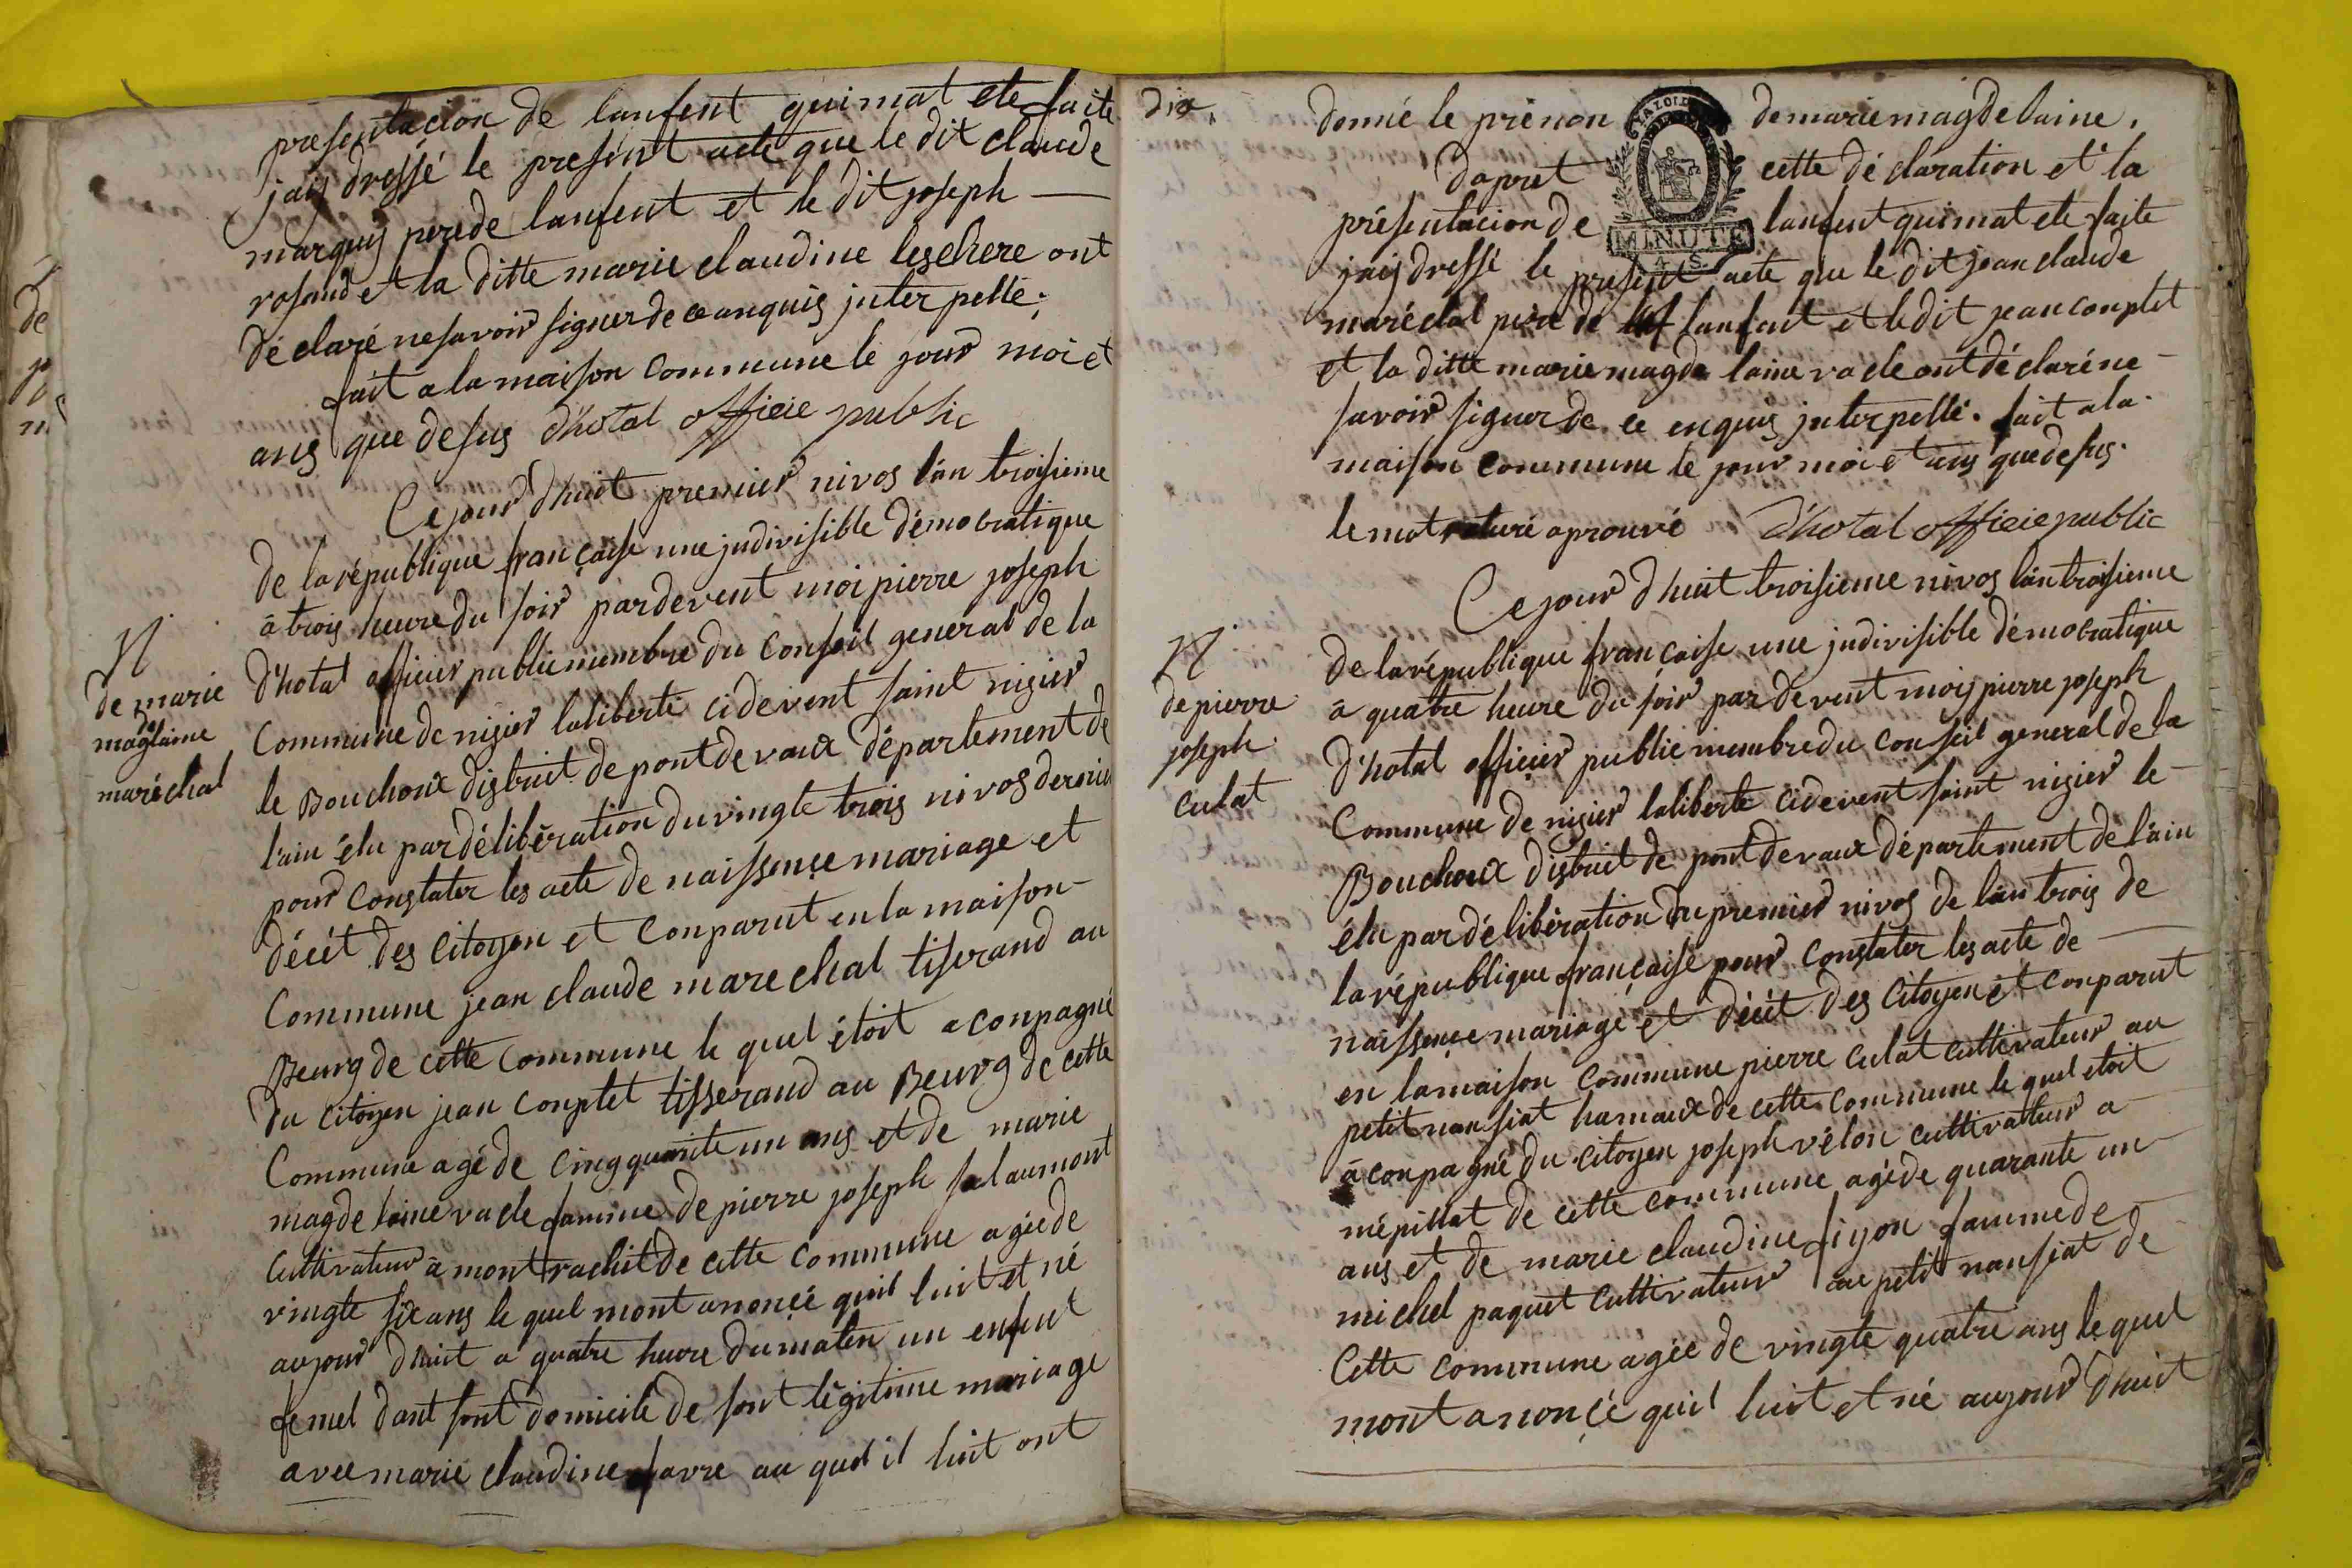 presentacion de lanfent quimat ete faite
jaij dressé le present acte que le dit claude
marquis perede lanfent et le dit joseph
rosand et la ditte marie claudine leschere ont
déclaré nesavoir signer de ceanquis jnterpellé;
fait a la maison commune le jour moi et
ans que desus d'hotal officie public
Ce jour d'huit premier nivos l'an troisieme
de la république française une jndivisible démocratique
à trois heure du soir pardevent moi pierre joseph
d'hotal officier public membre du conseil general de la
N
de marie
magdelaine
maréchal
Commune de nizier laliberté cidevent saint nizier
le Bouchoux distruit de pontdevaux département de
l'ain élu par délibération du vingte trois nivos dernier
pour constater les acte de naissence mariage et
décét des citoyen et conparut en la maison
Commune jean claude marechal tiserand au
Beurg de cette commune le quel étoit aconpagné
du citoyen jean conptet tisserand au Beurg de cette
Commune agé de cingquante un ans et de marie
magdelaine vacle famme de pierre joseph salaumont
cultivateur à montrachit de cette commune agée de
vingte six ans le quel mont anoncé quil luit et né
aujour d'huit a quatre heure du matin un enfent
femel dant sont domicile de sont légitime mariage
avec marie claudine favre au quel il luit ont
dix.
donné le prénon de marie magdelaine.
dapret cette déclaration et la
présentacion de lanfent quimat ete faite
MINUTE
4. S.
jaij dressé le present acte que le dit jean claude
maréchal pere de lanfent et le dit jean conptet
et la ditte marie magdelaine vacle ont déclaré ne
savoir signer de ce enquis jnterpellé. fait a la
maison commune le jour moi et ans que desus.
le mot raturé aprouvé d'hotal officie public
Ce jour d'huit troisieme nivos l'an troisieme
de la république française une jndivisible démocratique
à quatre heure du soir par devent moij pierre joseph
N
de pierre
joseph
culat
d'hotal officier public membre du conseil general de la
Commune de nizier laliberté cidevent saint nizier le
Bouchoux distruit de pontdevaux département de l'ain
élu par délibération du premier nivos de l'an trois de
la république française pour constater les acte de
naissence mariage et décét des citoyen et conparut
en la maison commune pierre culat cultivateur au
petit nansiat hamaux de cette commune le quel étoit
aconpagné du citoyen joseph vélon cultivateur a
mépillat de cette commune agé de quarante un
ans et de marie claudine fiyon famme de
michel paquet cultivateur au petit nansiat de
Cette commune agée de vingte quatre ans le quel
mont anoncé quil luit et né aujour d'huit